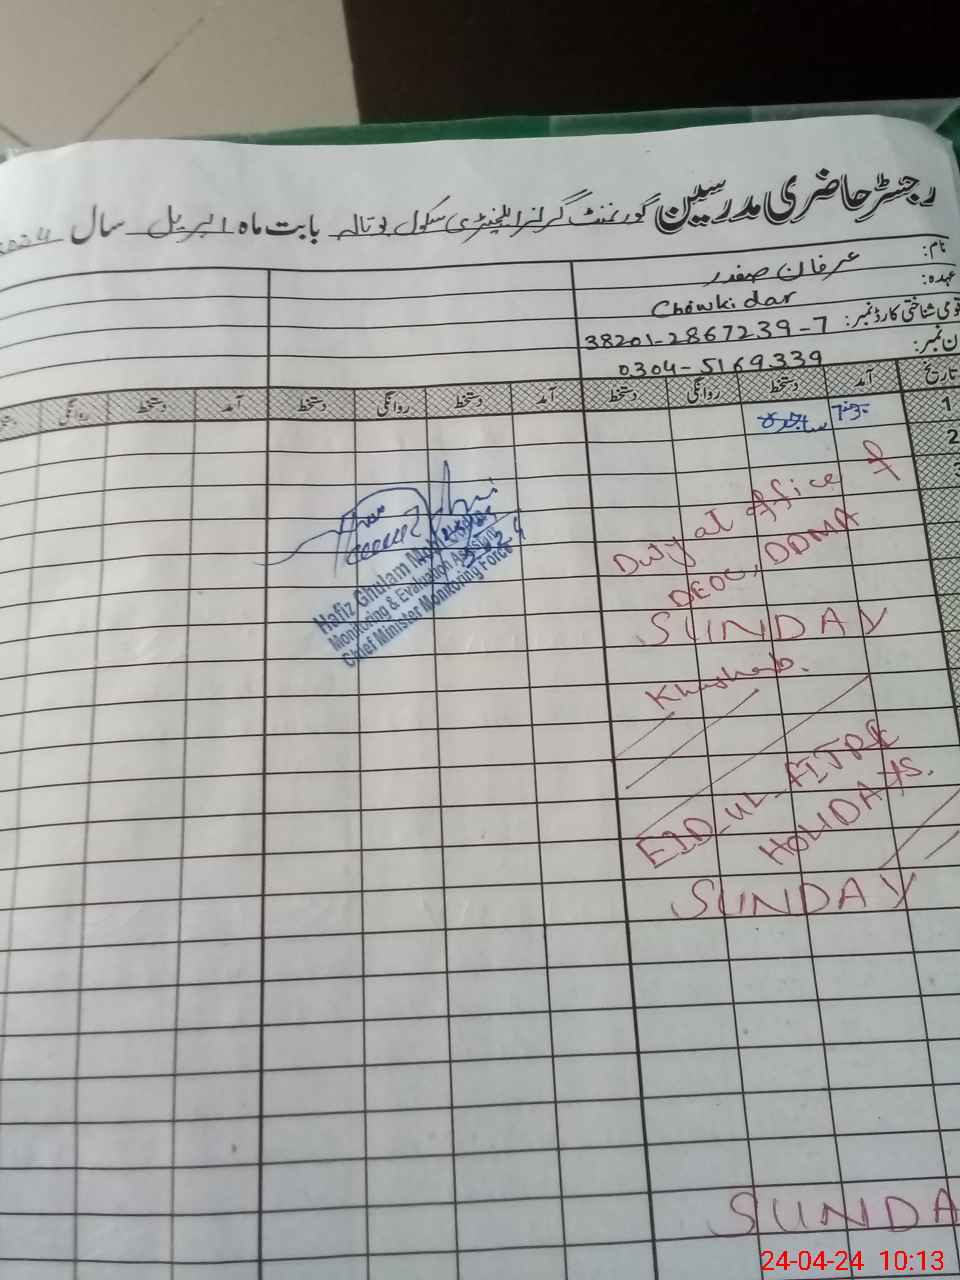 رجسٹر حاضری مدرسین گورنمنٹ گرلز ایلیمنٹری سکول بوتالہ بابت ماہ اپریل سال
نام: عرفان صفدر
عہدہ: Chowkidar
قومی شناختی کارڈ نمبر: 38201-2867239-7
ن نمبر: 0304-5169339
تاریخ آمد دستخط روانگی دستخط آمد دستخط روانگی دستخط آمد دستخط روانگی
1
2
Duty at office of
DEOC, DDMA
SUNDAY
EID_UL_FITR
HOLIDAYS.
SUNDAY
SUNDA
Hafiz Ghulam
Monitoring & Evaluation Assistant
Chief Minister Monitoring Force
24-04-24 10:13